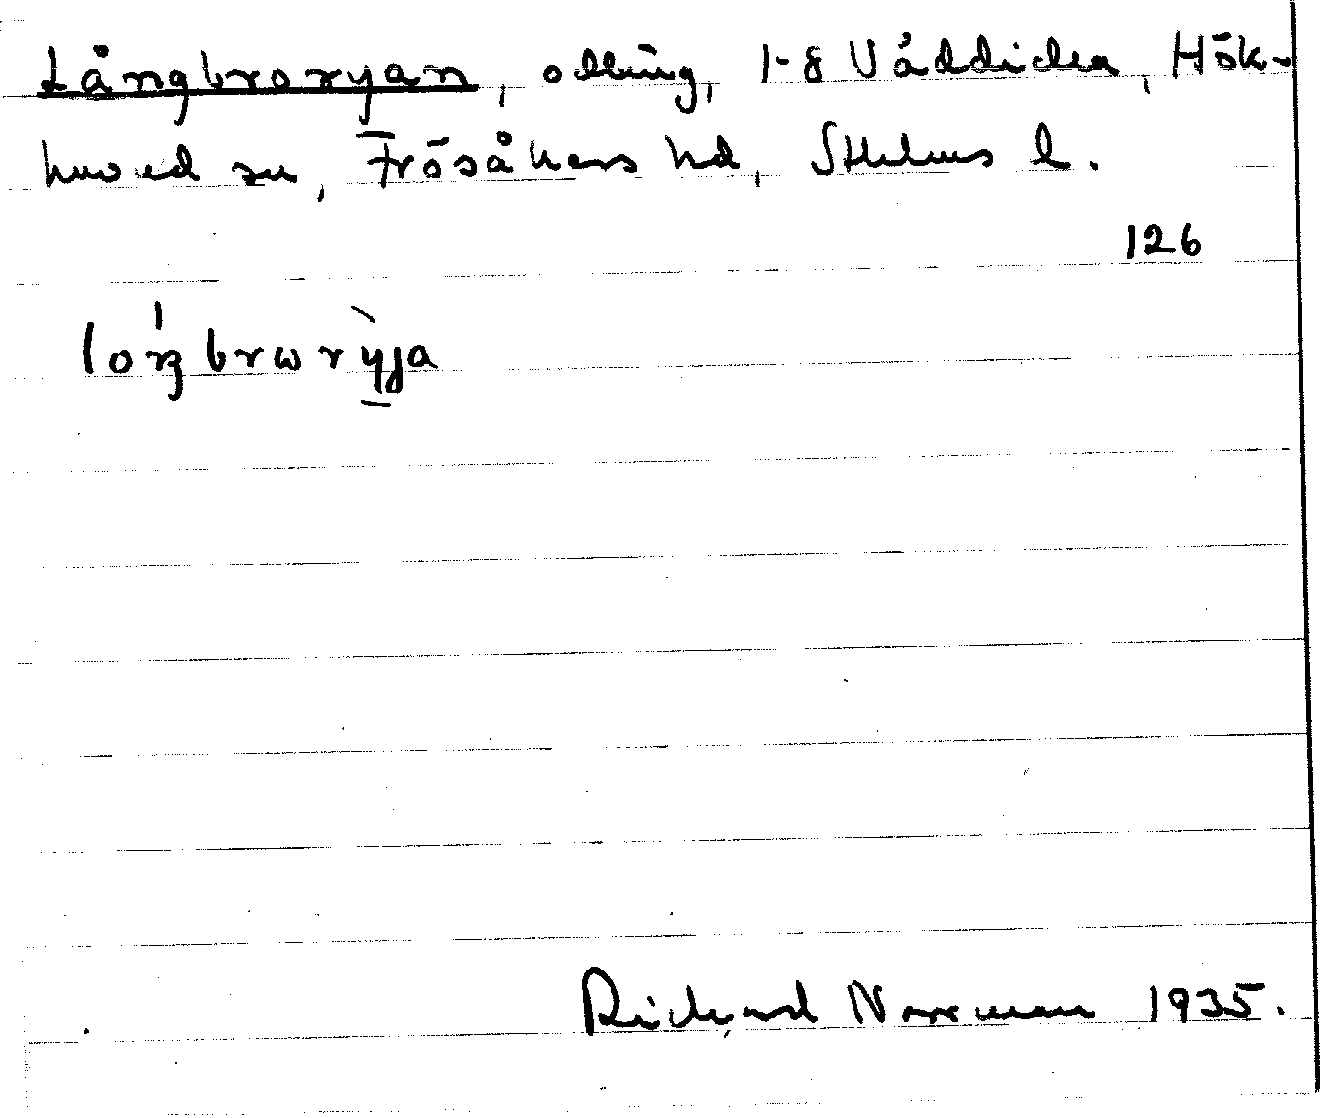 Långbroryan, odling, 1-8 Väddika, Hök-
huvud sn, Frösåkers hd, Sthlms l.
126
loŋbrωryja
Richard Norrman 1935.